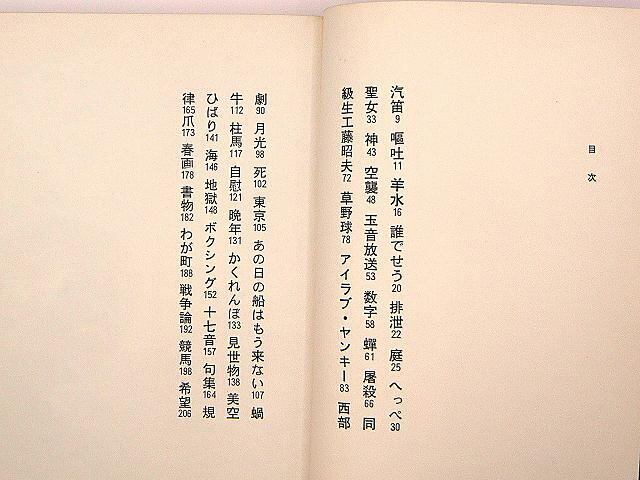 目次
汽笛9 嘔吐11 羊水16 誰でせう20 排泄22 庭25 へっぺ30
聖女33 神43 空襲48 玉音放送53 数字58 蟬61 屠殺66 同
級生工藤昭夫72 草野球78 アイラブ・ヤンキー83 西部
劇90 月光98 死102 東京105 あの日の船はもう来ない107 蝸
牛112 柱馬117 自慰121 晩年131 かくれんぼ133 見世物138 美空
ひばり141 海146 地獄148 ボクシング152 十七音157 句集164 規
律165 爪173 春画178 書物182 わが町188 戦争論192 競馬198 希望206